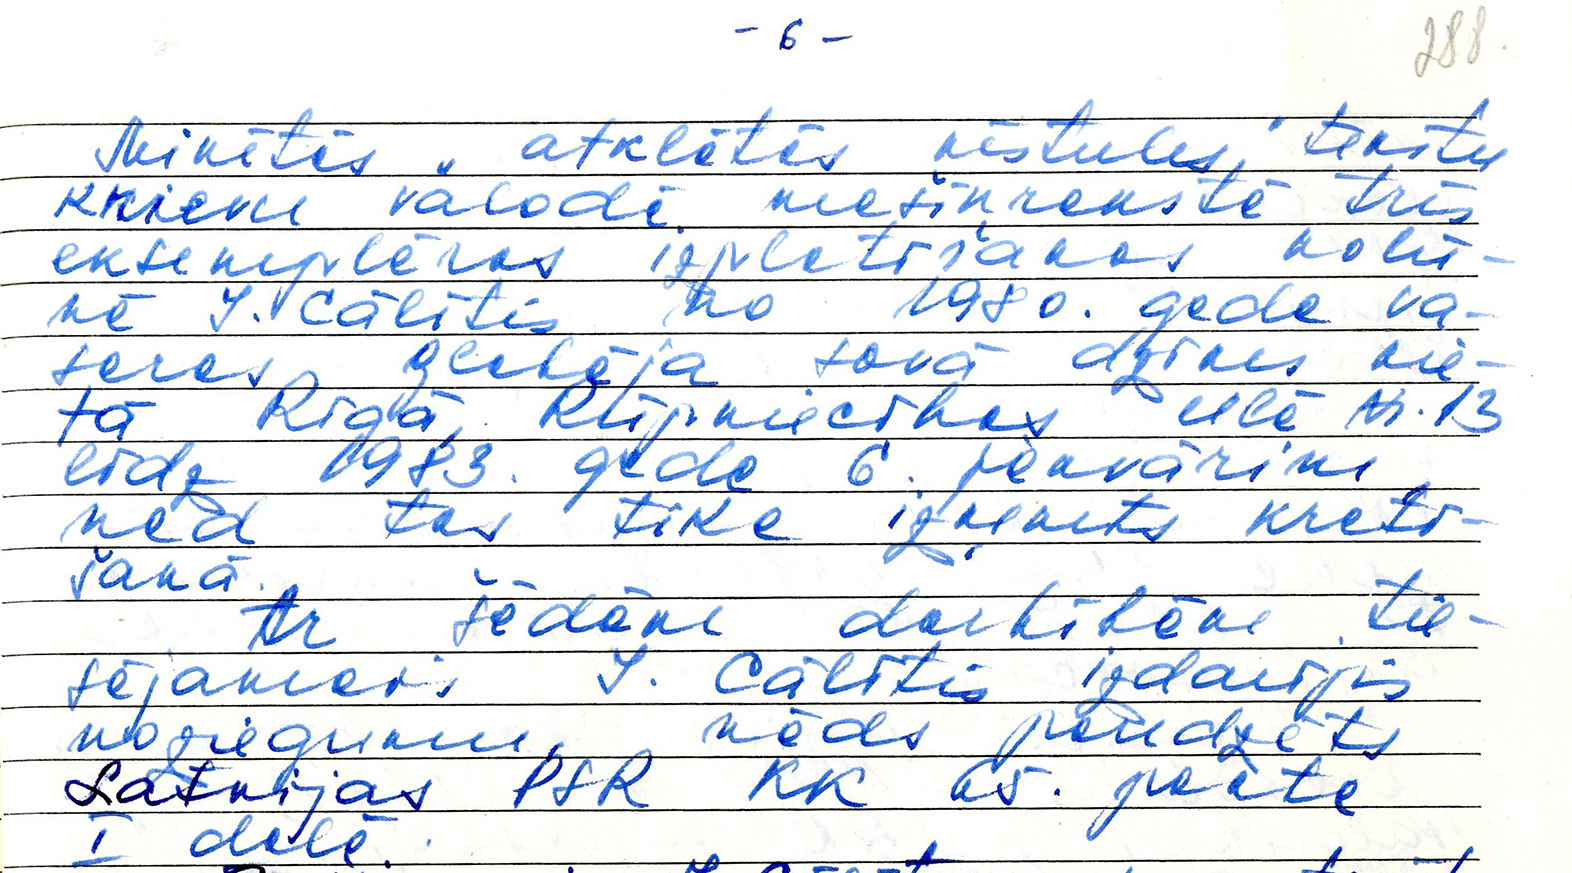 - 6 -
288.
Minētās "atklātās vēstules" tekstu
krievu valodā mašīnrakstā trīs
eksemplāros izplatīšanas nolū-
kā I. Cālītis no 1980. gada va-
saras glabāja savā dzīves vie-
tā Rīgā, Rūpniecības ielā Nr. 13
līdz 1983. gada 6. janvārim
kad tas tika izņemts krati-
šanā.
Ar šādām darbībām tie-
sājamais I. Cālītis izdarījis
noziegumu, kāds paredzēts
Latvijas PSR KK 65. panta
I daļā.